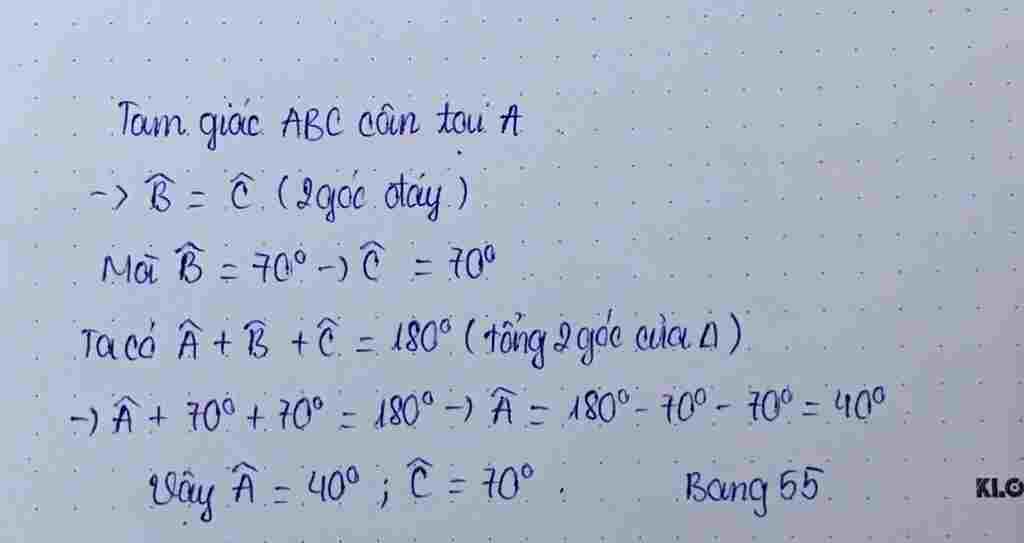 Tam giác ABC cân tại A
-> B̂ = Ĉ (2góc đáy)
Mà B̂ = 70° -> Ĉ = 70°
Ta có Â + B̂ + Ĉ = 180° (tổng 2góc của Δ)
-> Â + 70° + 70° = 180° -> Â = 180° - 70° - 70° = 40°
Vậy Â = 40° ; Ĉ = 70° . Bang55
KLO